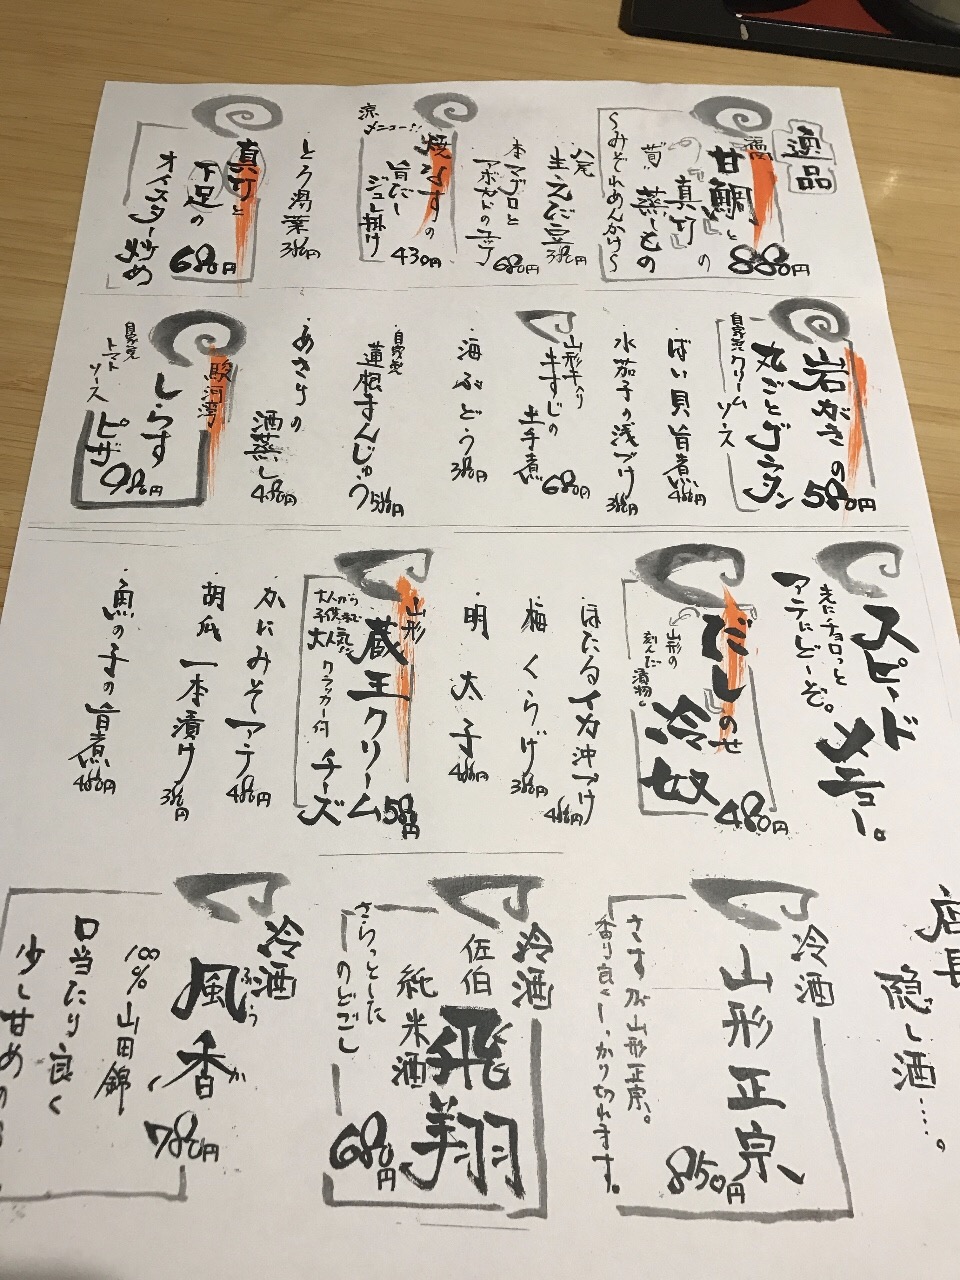 逸品
甘鯛と
『真竹』の
蒸しもの
〜みぞれあんかけ〜
880円
八尾
生えだ豆
380円
本マグロと
アボカドの
680円
涼メニュー!!
焼なすの
旨だし
ジュレ掛け
430円
・とろ湯葉
380円
真竹と
下足の
オイスター炒め
680円
岩がきの
丸ごとグラタン
自家製クリームソース
580円
・ばい貝旨煮
480円
・水茄子の浅づけ
380円
山形牛入り
牛すじの
土手煮
680円
・海ぶどう
380円
・自家製
蓮根まんじゅう
580円
・あさりの
酒蒸し
480円
駿河湾
しらす
ピザ
自家製
トマト
ソース
980円
スピードメニュー。
まずチョロっと
アテにどーぞ。
『だし』のせ
冷奴
山形の
刻んだ
漬物。
480円
・ほたるイカ沖づけ
480円
・梅くらげ
380円
・明太子
480円
山形
蔵王クリーム
チーズ
大人から
子供まで
大人気!!
クラッカー付
580円
・かにみそアテ
480円
・胡瓜一本漬け
380円
・魚の子の旨煮
480円
店長
隠し酒….。
冷酒
山形正宗
さすが山形正宗。
香り良くしっかり切れます。
850円
冷酒
佐伯
飛翔
純米酒
さらっとした
のどごし
680円
冷酒
風香
ふうか
100%山田錦
口当たり良く
少し甘めの
780円